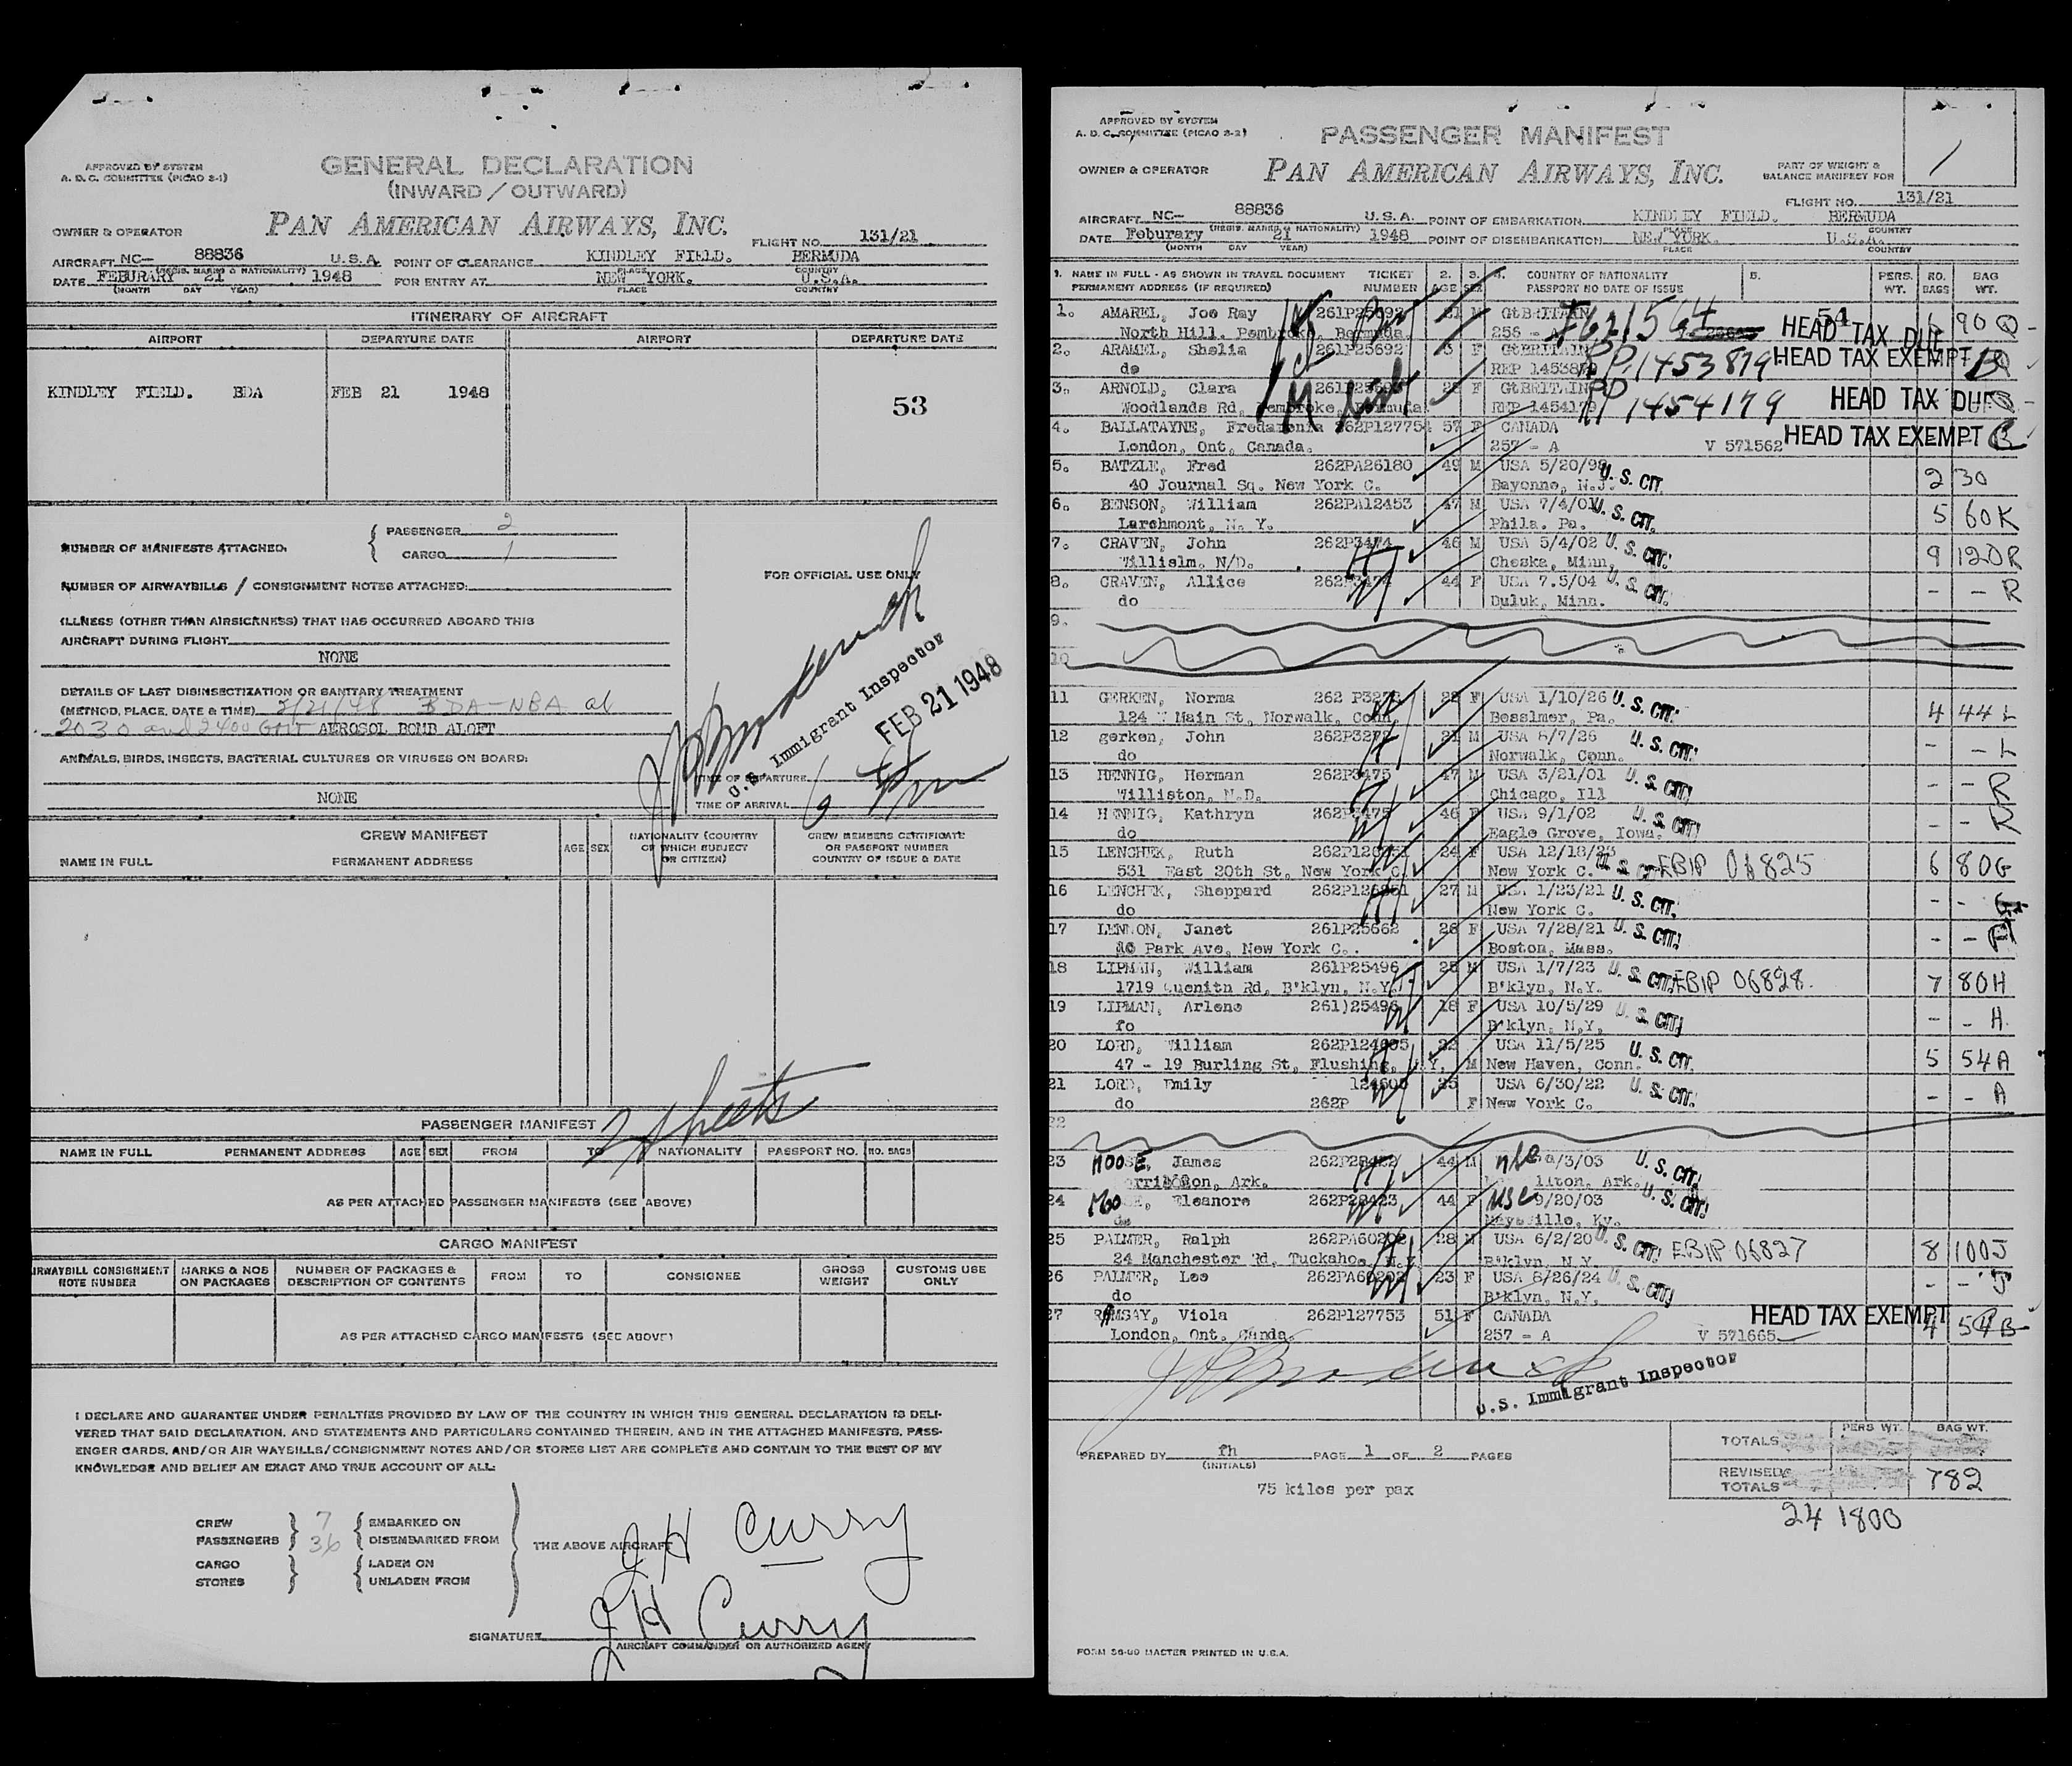 APPROVED BY SYSTEM
A. D. C. COMMITTEE (PICAO 2-1)
GENERAL DECLARATION
(INWARD / OUTWARD)
PAN AMERICAN AIRWAYS, INC.
OWNER & OPERATOR
FLIGHT NO. 131/21
AIRCRAFT NC- 88836 U.S.A. POINT OF CLEARANCE KINDLEY FIELD. BERMUDA
(REGIS. MARKS & NATIONALITY) PLACE COUNTRY
DATE FEBURARY 21 1948 FOR ENTRY AT NEW YORK. U.S.A.
(MONTH DAY YEAR) PLACE COUNTRY
ITINERARY OF AIRCRAFT
AIRPORT DEPARTURE DATE AIRPORT DEPARTURE DATE
KINDLEY FIELD. BDA FEB 21 1948
53
NUMBER OF MANIFESTS ATTACHED. { PASSENGER 2
CARGO 1
NUMBER OF AIRWAYBILLS / CONSIGNMENT NOTES ATTACHED:
FOR OFFICIAL USE ONLY
ILLNESS (OTHER THAN AIRSICKNESS) THAT HAS OCCURRED ABOARD THIS
AIRCRAFT DURING FLIGHT
NONE
DETAILS OF LAST DISINSECTIZATION OR SANITARY TREATMENT
(METHOD, PLACE, DATE & TIME) 2/21/48 BDA-NBA at
2030 and 2400 GMT AEROSOL BOMB ALOFT
ANIMALS, BIRDS, INSECTS, BACTERIAL CULTURES OR VIRUSES ON BOARD:
NONE
U.S. Immigrant Inspector
FEB 21 1948
TIME OF DEPARTURE
TIME OF ARRIVAL
CREW MANIFEST
NAME IN FULL PERMANENT ADDRESS AGE SEX NATIONALITY (COUNTRY OF WHICH SUBJECT OR CITIZEN) CREW MEMBERS CERTIFICATE OR PASSPORT NUMBER COUNTRY OF ISSUE & DATE
2 sheets
PASSENGER MANIFEST
NAME IN FULL PERMANENT ADDRESS AGE SEX FROM TO NATIONALITY PASSPORT NO. NO. BAGS
AS PER ATTACHED PASSENGER MANIFESTS (SEE ABOVE)
CARGO MANIFEST
AIRWAYBILL CONSIGNMENT NOTE NUMBER MARKS & NOS ON PACKAGES NUMBER OF PACKAGES & DESCRIPTION OF CONTENTS FROM TO CONSIGNEE GROSS WEIGHT CUSTOMS USE ONLY
AS PER ATTACHED CARGO MANIFESTS (SEE ABOVE)
I DECLARE AND GUARANTEE UNDER PENALTIES PROVIDED BY LAW OF THE COUNTRY IN WHICH THIS GENERAL DECLARATION IS DELI-
VERED THAT SAID DECLARATION, AND STATEMENTS AND PARTICULARS CONTAINED THEREIN, AND IN THE ATTACHED MANIFESTS, PASS-
ENGER CARDS, AND/OR AIR WAYBILLS/CONSIGNMENT NOTES AND/OR STORES LIST ARE COMPLETE AND CONTAIN TO THE BEST OF MY
KNOWLEDGE AND BELIEF AN EXACT AND TRUE ACCOUNT OF ALL:
CREW 7 EMBARKED ON
PASSENGERS 36 DISEMBARKED FROM
THE ABOVE AIRCRAFT
CARGO LADEN ON
STORES UNLADEN FROM
J H Curry
J H Curry
SIGNATURE
AIRCRAFT COMMANDER OR AUTHORIZED AGENT
APPROVED BY SYSTEM
A. D. C. COMMITTEE (PICAO 2-2)
PASSENGER MANIFEST
1
OWNER & OPERATOR PAN AMERICAN AIRWAYS, INC.
PART OF WEIGHT &
BALANCE MANIFEST FOR
FLIGHT NO. 131/21
AIRCRAFT NC- 88836 U.S.A. POINT OF EMBARKATION KINDLEY FIELD. BERMUDA
(REGIS. MARKS & NATIONALITY) PLACE COUNTRY
DATE Feburary 21 1948 POINT OF DISEMBARKATION NEW YORK. U.S.A.
(MONTH DAY YEAR) PLACE COUNTRY
1. NAME IN FULL - AS SHOWN IN TRAVEL DOCUMENT TICKET 2. 3. 4. COUNTRY OF NATIONALITY 5. PERS. NO. BAG
PERMANENT ADDRESS (IF REQUIRED) NUMBER AGE SEX PASSPORT NO DATE OF ISSUE WT. BAGS WT.
1. AMAREL, Joe Ray 261P25692 M GtBRITAIN 54 90 Q
North Hill. Pembroke, Bermuda. 256 - A HEAD TAX DUE
2. ARAMEL, Shelia 261P25692 F GtBRITAIN
do REP 1453879 PP.1453879 HEAD TAX EXEMPT
3. ARNOLD, Clara F GtBRITAIN
Woodlands Rd, Pembroke, Bermuda. REP 1454179 PP 1454179 HEAD TAX DUE
4. BALLATAYNE, Fredaronia 262P127754 57 F CANADA
London, Ont. Canada. 257 - A V 571562 HEAD TAX EXEMPT
5. BATZLE, Fred 262PA26180 49 M USA 5/20/98 U. S. CIT.
40 Journal Sq. New York C. Bayonne, N.J. 2 30
6. BENSON, William 262PA12453 47 M USA 7/4/01 U. S. CIT.
Larchmont, N. Y. Phila. Pa. 5 60K
7. CRAVEN, John 262P3474 46 M USA 5/4/02 U. S. CIT.
Willislm, N/D. Cheska, Minn, 9 120R
8. CRAVEN, Allice 262P3474 44 F USA 7.5/04 U. S. CIT.
do Duluk, Minn. - - R
9.
10
11 GERKEN, Norma 28 F USA 1/10/26 U. S. CIT.
124 Main St, Norwalk, Conn, Besslmer, Pa. 4 44 L
12 gerken, John 21 M USA 8/7/26 U. S. CIT.
do Norwalk, Conn. - - L
13 HENNIG, Herman 262P3475 47 M USA 3/21/01 U. S. CIT.
Williston, N.D. Chicago, Ill - - R
14 HENNIG, Kathryn 262P3475 46 F USA 9/1/02 U. S. CIT.
do Eagle Grove, Iowa. - - R
15 LENCHEK, Ruth 24 F USA 12/18/23 U. S. CIT. EBIP 06825
531 East 20th St, New York C. New York C. 6 80G
16 LENCHEK, Sheppard 27 M 1/23/21 U. S. CIT.
do New York C. - -
17 LENNON, Janet 261P25662 26 F USA 7/28/21 U. S. CIT.
10 Park Ave, New York C.. Boston, Mass. - -
18 LIPMAN, William 261P25496 25 M USA 1/7/23 U. S. CIT. EBIP 06828.
1719 Quenitn Rd, B'klyn, N.Y. B'klyn, N.Y. 7 80H
19 LIPMAN, Arlene 261)25496 18 F USA 10/5/29 U. S. CIT.
fo B'klyn, N.Y. - - H.
20 LORD, William 22 USA 11/5/25 U. S. CIT.
47 - 19 Burling St, Flushing, N.Y. M New Haven, Conn. 5 54A
21 LORD, Emily 25 USA 6/30/22 U. S. CIT.
do 262P F New York C. - - A
22
23 MOOSE, James 44 M /3/03 U. S. CIT.
Ark.
24 Eleanore 262P28423 44 F 9/20/03 U. S. CIT.
Maysville, Ky.
25 PALMER, Ralph 262PA60202 28 M USA 6/2/20 U. S. CIT. EBIP 06827
24 Manchester Rd, Tuckahoe, N.Y. B'klyn, N.Y. 8 100J
26 PALMER, Lee 262PA60202 23 F USA 8/26/24 U. S. CIT.
do B'klyn, N.Y. - - J
27 RAMSAY, Viola 262P127753 51 F CANADA HEAD TAX EXEMPT
London, Ont. Canda. 257 - A V 571665 4 54B
U.S. Immigrant Inspector
PREPARED BY fh PAGE 1 OF 2 PAGES
(INITIALS)
75 kilos per pax
PERS WT. BAG WT.
TOTALS
REVISED TOTALS 782
24 1800
FORM 56-00 MASTER PRINTED IN U.S.A.